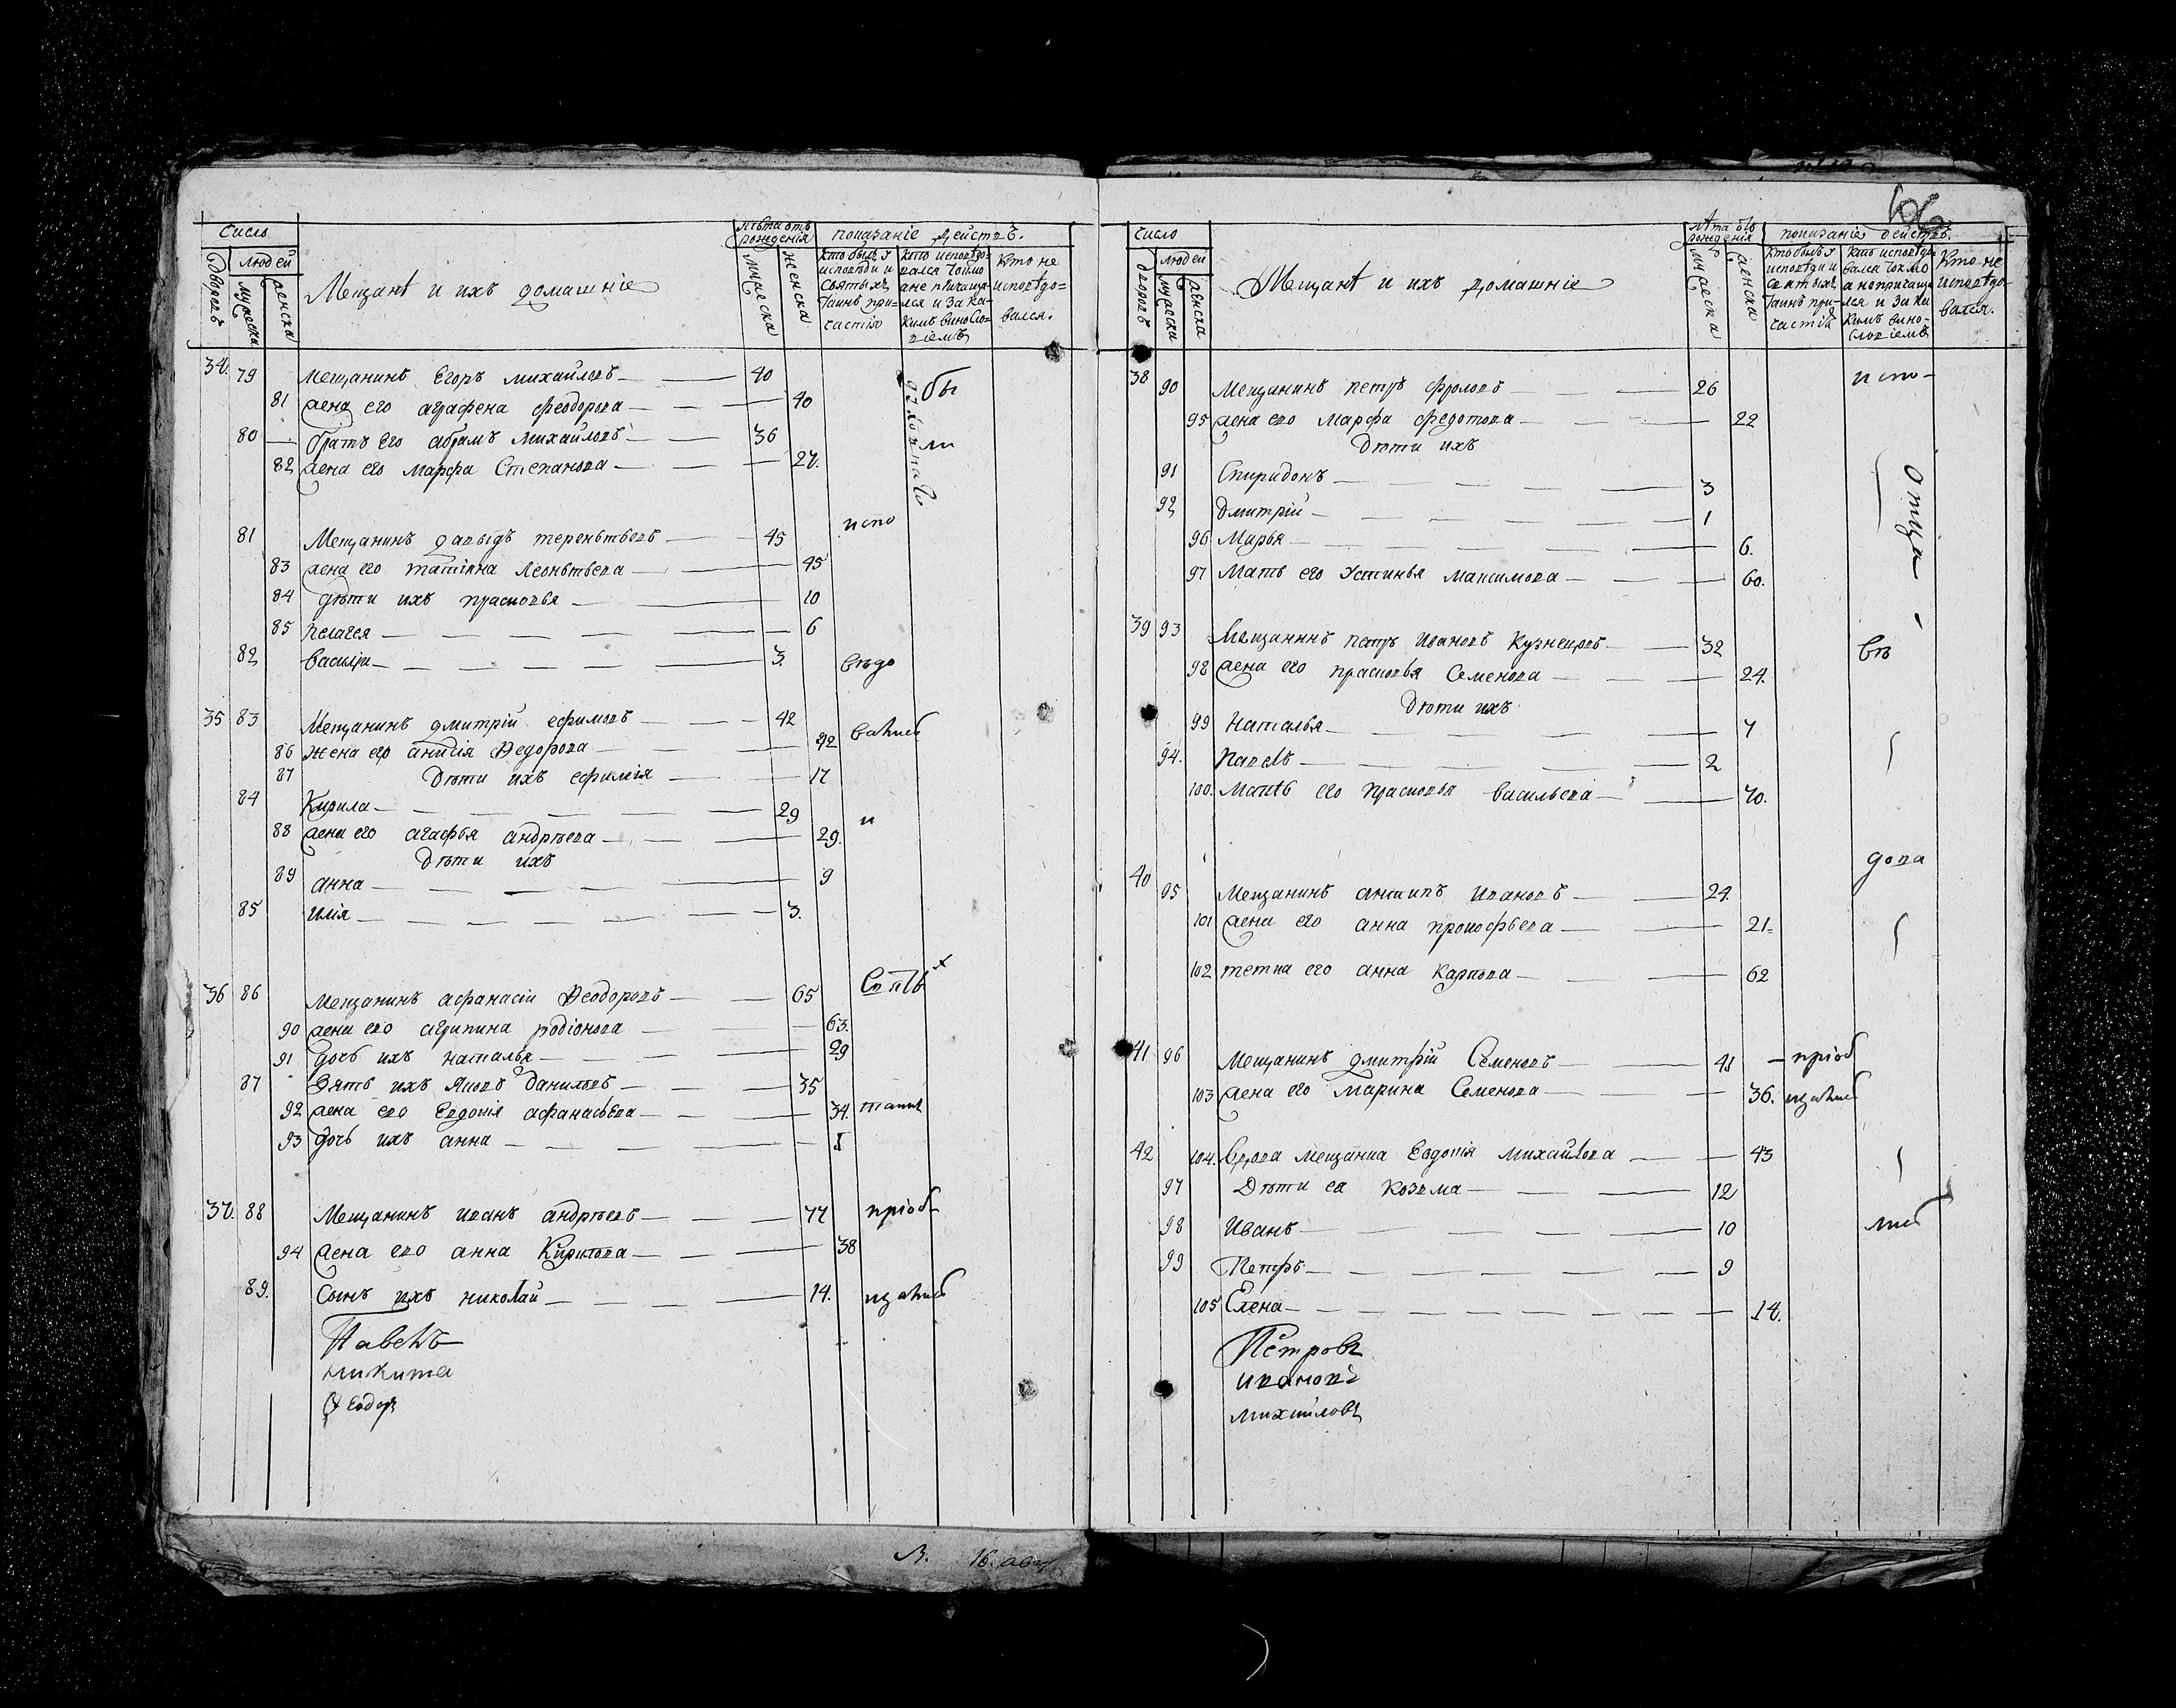 число
лѣта отъ рожденія
показаніе дѣйствъ.
дворовъ
людей
мужеска
женска
Мещанѣ и ихъ домашніе
мужеска
женска
кто былъ у исповѣди и святыхъ таинъ причастія
кто исповѣдовался токмо а не причащался и за какимъ винословіемъ
кто не исповѣдовался.
34. 79 Мещанинъ Егоръ михайловъ 40 бы
81 жена его аграфена феодорова 40
80 братъ его абрамъ михайловъ 36 ли
82 жена его марфа Степанова 27.
81 Мещанинъ давыдъ терентьевъ 45 испо
83 жена его татіяна Леонтьева 45
84 дѣти ихъ прасковья 10
85 пелагея 6
82 василій 3. вѣдо
35 83 Мещанинъ дмитрій ефимовъ 42 вались
86 жена его анисія Федорова 42
87 Дѣти ихъ ефимія 17
84 Кирила 29 и
88 жена его агафья андрѣева 29.
Дѣти ихъ
89 анна 9
85 илія 3.
36 86 Мещанинъ афанасій Феодоровъ 65
90 жена его агрипина родіонова 63.
91 дочь ихъ наталья 29
87 Зять ихъ Яковъ даниловъ 35
92 жена его Евдокія афанасьева 34. таинъ
93 дочь ихъ анна 1
37. 88 Мещанинъ иванъ андрѣевъ 47 пріоб
94 жена его анна Кирилова 38
89. Сынъ ихъ николай 14. щались
Павелъ
никита
Феодоръ
16.
число
лѣта отъ рожденія
показаніе дѣйствъ.
дворовъ
людей
мужеска
женска
Мещанѣ и ихъ домашніе
мужеска
женска
кто былъ у исповѣди и святыхъ таинъ причастія
кто исповѣдовался токмо а не причащался и за какимъ винословіемъ
кто не исповѣдовался.
38 90 Мещанинъ петръ фроловъ 26 испо-
95 жена его марфа федотова 22
Дѣти ихъ
91 Спиридонъ 3
92 дмитрій 1
96 Марья 6.
97 Мать его Устинья максимова 60.
39 93 Мещанинъ петръ Ивановъ Кузнецовъ 32 вѣ
98 жена его прасковья Семенова 24.
Дѣти ихъ
99 Наталья 7
94. павелъ 2
100. Мать его прасковья васильева 70.
дова
40 95 Мещанинъ антипъ ивановъ 24.
101 жена его анна прокофьева 21.
102 тетка его анна Карпова 62
41 96 Мещанинъ дмитрій Семеновъ 41 пріоб
103 жена его Марина Семенова 36. щались
42 104. Вдова мещанка Евдокія михайлова 43
97 Дѣти ея козма 12
98 Иванъ 10 лись
99 Петръ 9
105 Елена 14.
Петровъ
ивановъ
михайловъ